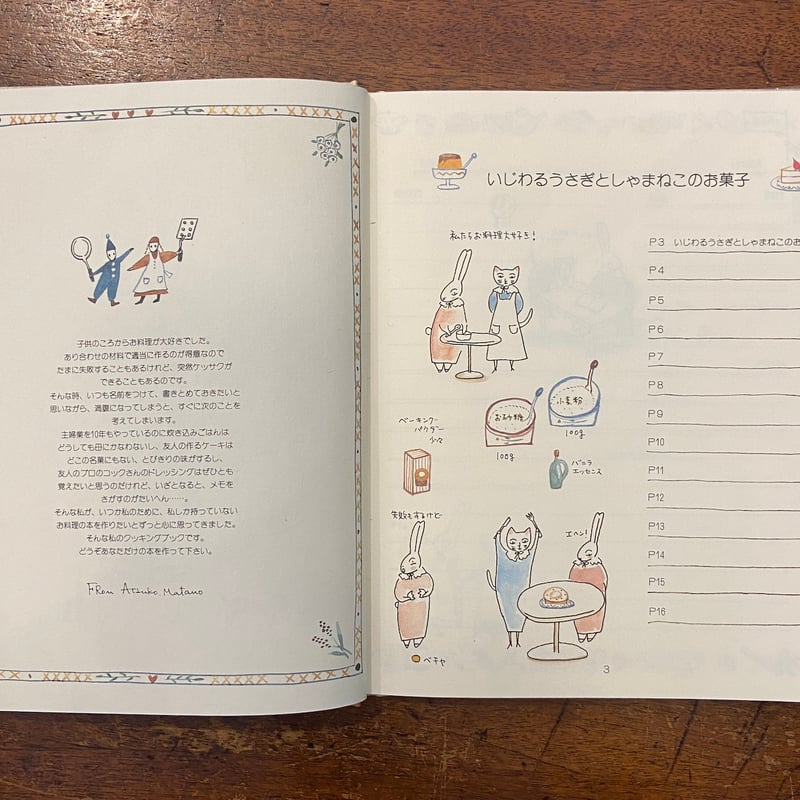 子供のころからお料理が大好きでした。
あり合わせの材料で適当に作るのが得意なので
たまに失敗することもあるけれど、突然ケッサクが
できることもあるのです。
そんな時、いつも名前をつけて、書きとめておきたいと
思いながら、満腹になってしまうと、すぐに次のことを
考えてしまいます。
主婦業を10年もやっているのに炊き込みごはんは
どうしても母にかなわないし、友人の作るケーキは
どこの名菓にもない、とびきりの味がするし、
友人のプロのコックさんのドレッシングはぜひとも
覚えたいと思うのだけれど、いざとなると、メモを
さがすのがたいへん……。
そんな私が、いつか私のために、私しか持っていない
お料理の本を作りたいとずっと心に思ってきました。
そんな私のクッキングブックです。
どうぞあなただけの本を作って下さい。
From Atsuko Matano
いじわるうさぎとしゃまねこのお菓子
私たちお料理大好き!
ベーキング
パウダー
少々
お砂糖
100g
小麦粉
100g
バニラ
エッセンス
失敗もするけど
ペチャ
エヘン!
P3 いじわるうさぎとしゃまねこのお
P4
P5
P6
P7
P8
P9
P10
P11
P12
P13
P14
P15
P16
3